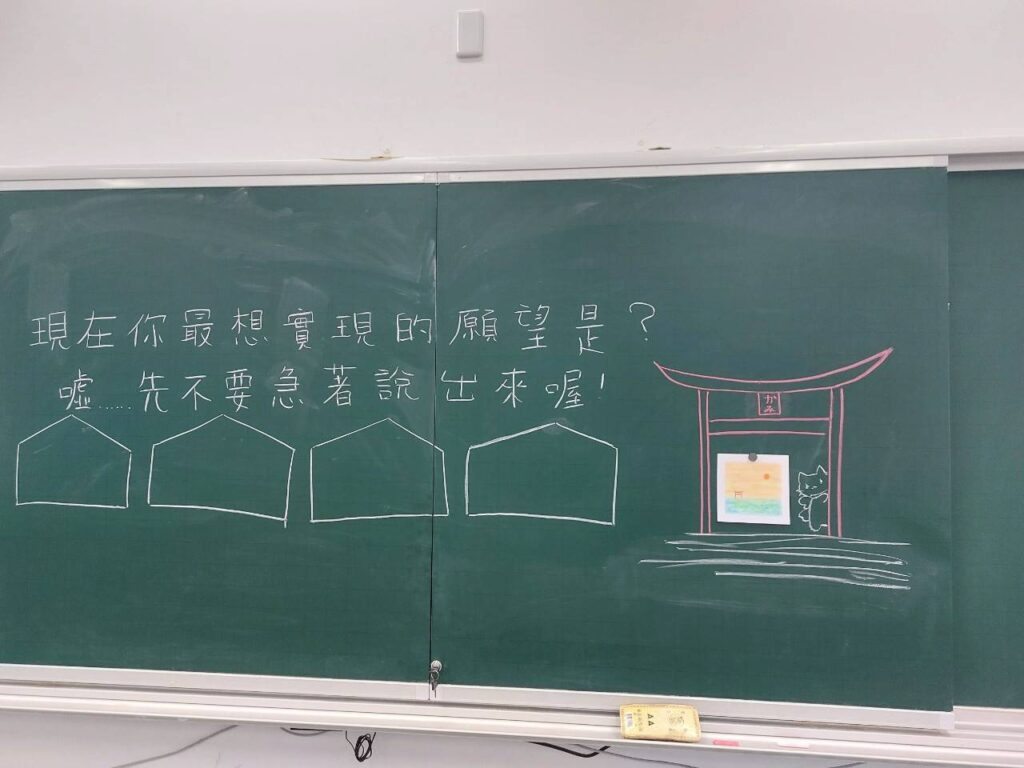 現在你最想實現的願望是?
噓……先不要急著說出來喔!
かみ